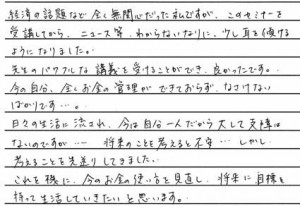 経済の話題など全く無関心だった私ですが、このセミナーを
受講してから、ニュース等、わからないなりに、少し耳を傾ける
ようになりました。
先生のパワフルな講義を受けることができ、良かったです。
今の自分、全くお金の管理ができておらず、なさけない
ばかりです…。
日々の生活に流され、今は自分一人だから大して支障は
ないのですが… 将来のことを考えると不安… しかし
考えることを先送りしてきました。
これを機に、今のお金の使い方を見直し、将来に目標を
持って生活していきたいと思います。